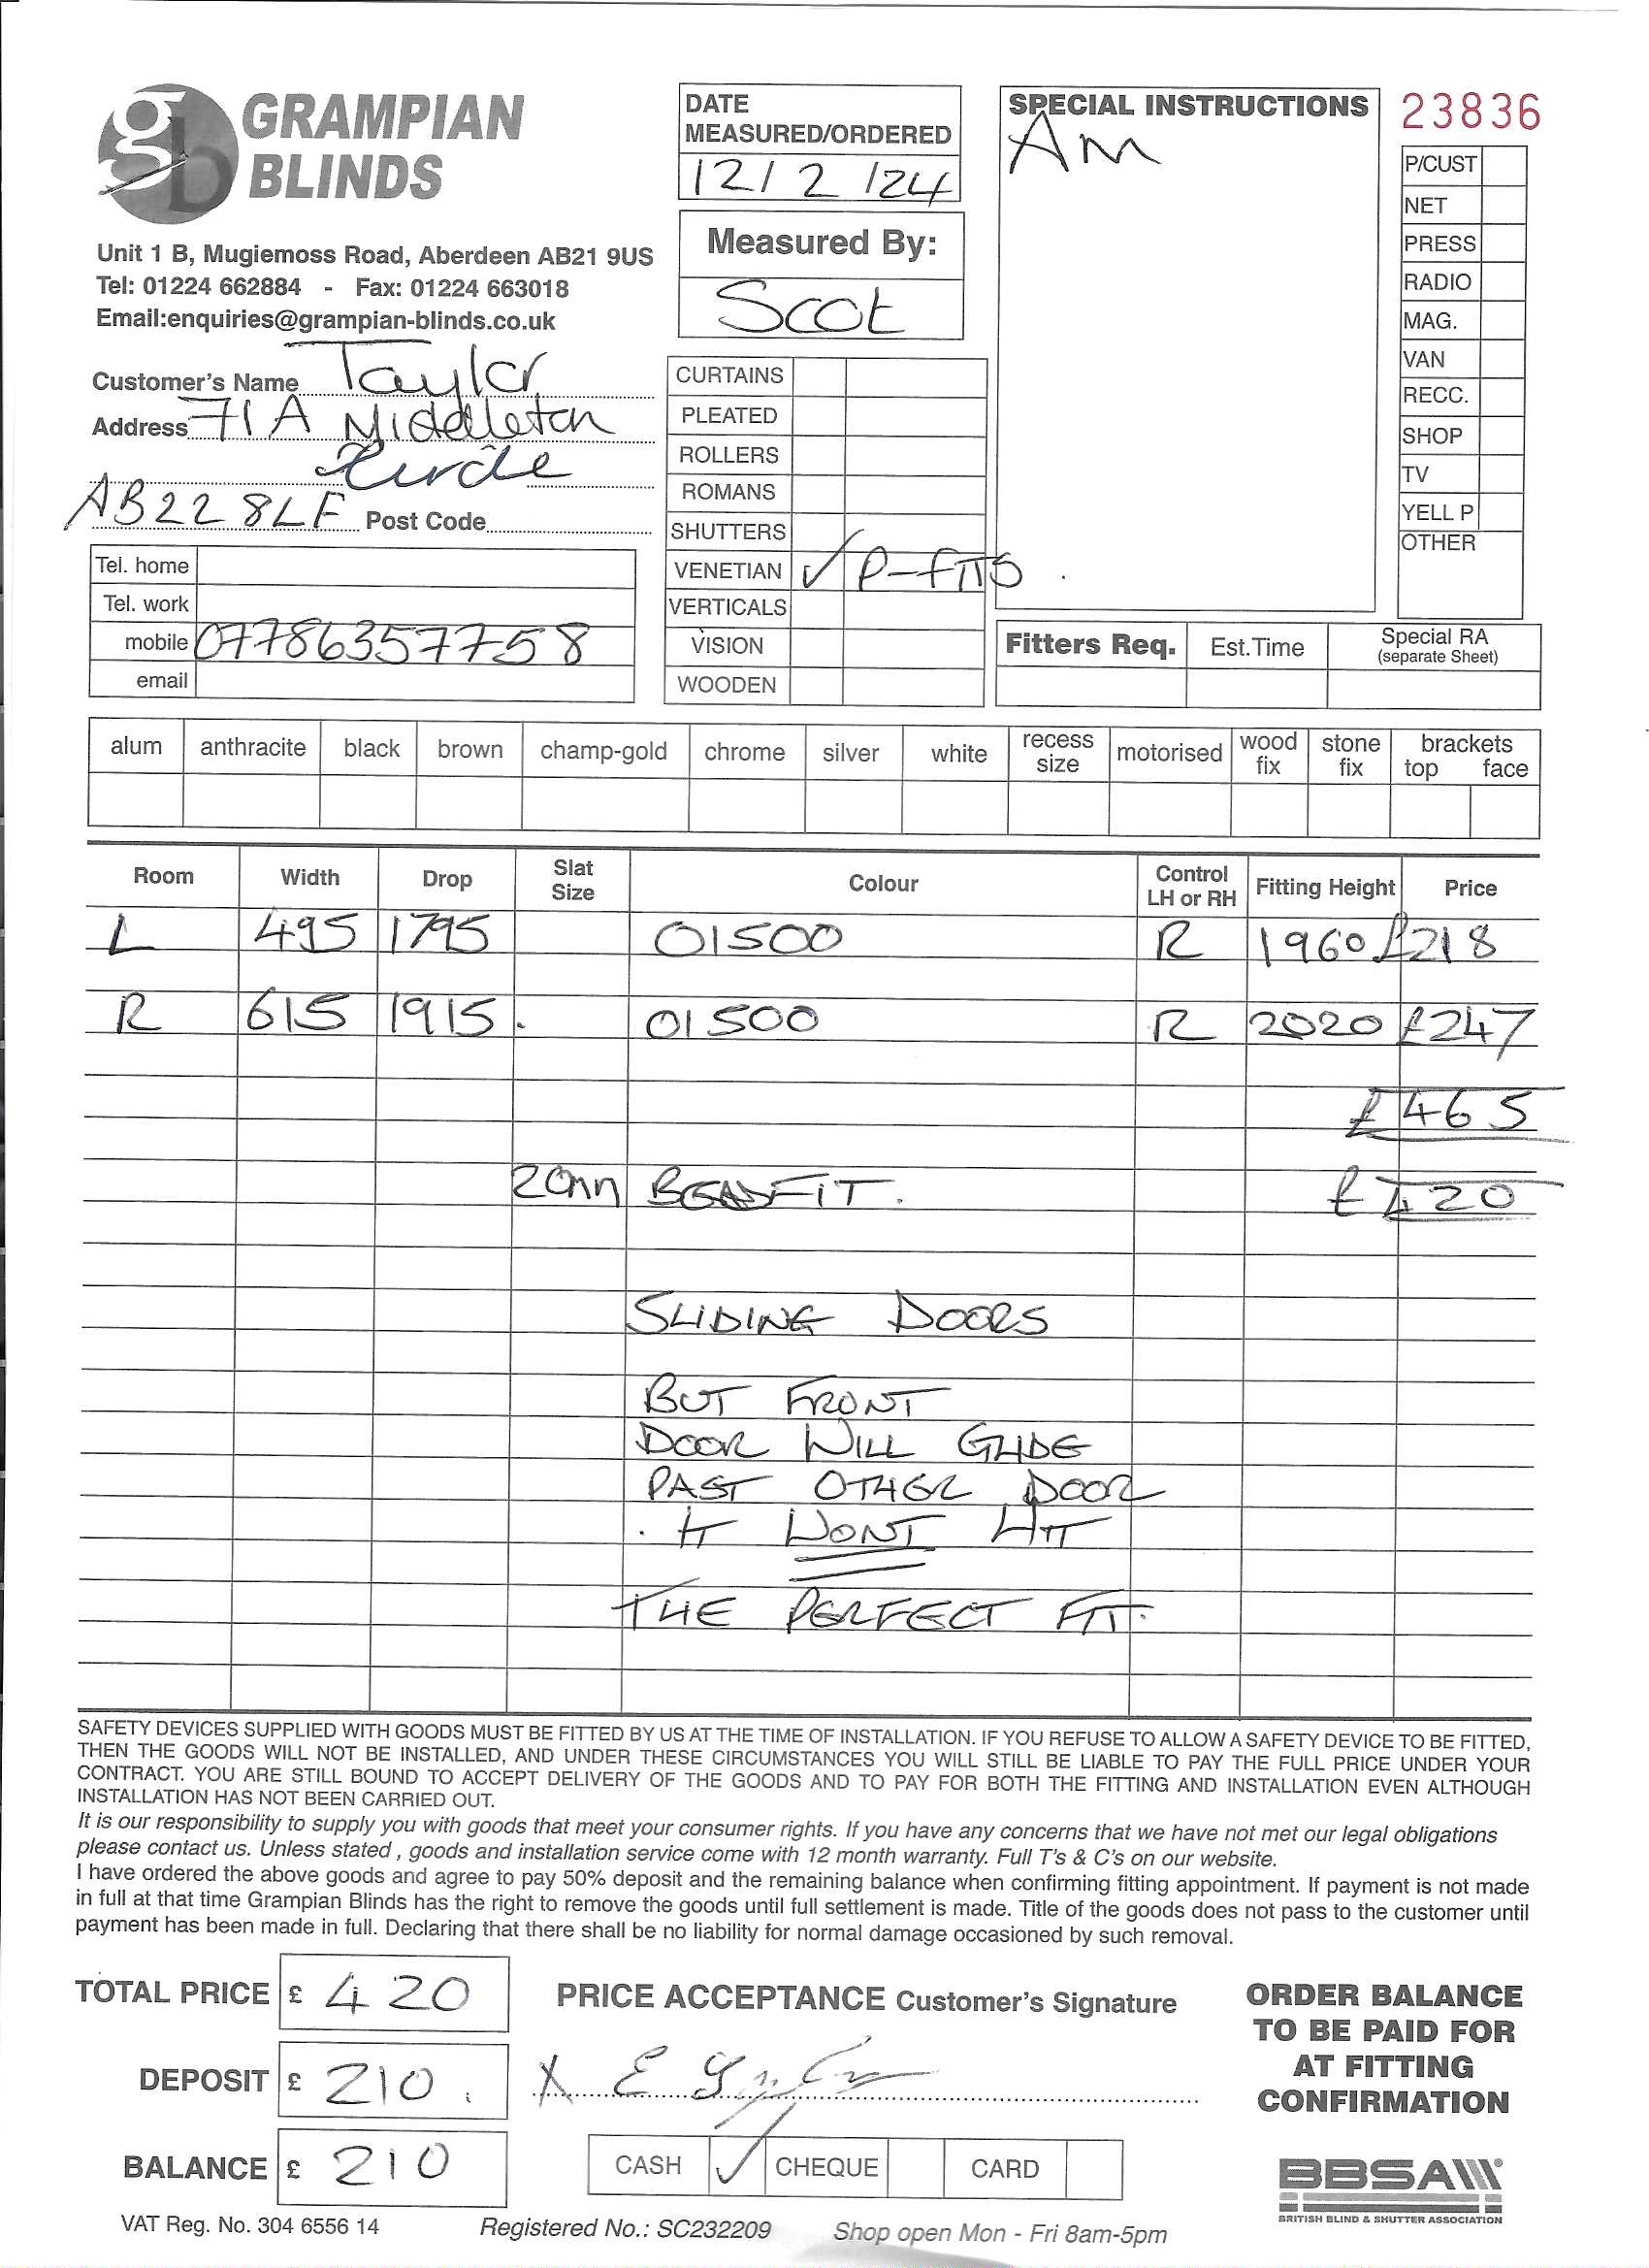 gb
GRAMPIAN
BLINDS
Unit 1 B, Mugiemoss Road, Aberdeen AB21 9US
Tel: 01224 662884 - Fax: 01224 663018
Email:enquiries@grampian-blinds.co.uk
DATE
MEASURED/ORDERED
12/2/24
Measured By:
Scot
SPECIAL INSTRUCTIONS
AM
23836
P/CUST
NET
PRESS
RADIO
MAG.
VAN
RECC.
SHOP
TV
YELL P
OTHER
Customer's Name Taylor
Address 71A Middleton
Circle
AB22 8LF Post Code
Tel. home
Tel. work
mobile 07786357758
email
CURTAINS
PLEATED
ROLLERS
ROMANS
SHUTTERS
VENETIAN ✓ P-FITS
VERTICALS
VISION
WOODEN
Fitters Req. Est.Time Special RA
(separate Sheet)
alum anthracite black brown champ-gold chrome silver white recess size motorised wood fix stone fix brackets top face
Room Width Drop Slat Size Colour Control LH or RH Fitting Height Price
L 495 1795 01500 R 1960 £218
R 615 1915 01500 R 2020 £247
£465
20mm BEADFIT. £420
SLIDING DOORS
BUT FRONT
DOOR WILL GLIDE
PAST OTHER DOOR
IT WONT HIT
THE PERFECT FIT.
SAFETY DEVICES SUPPLIED WITH GOODS MUST BE FITTED BY US AT THE TIME OF INSTALLATION. IF YOU REFUSE TO ALLOW A SAFETY DEVICE TO BE FITTED,
THEN THE GOODS WILL NOT BE INSTALLED, AND UNDER THESE CIRCUMSTANCES YOU WILL STILL BE LIABLE TO PAY THE FULL PRICE UNDER YOUR
CONTRACT. YOU ARE STILL BOUND TO ACCEPT DELIVERY OF THE GOODS AND TO PAY FOR BOTH THE FITTING AND INSTALLATION EVEN ALTHOUGH
INSTALLATION HAS NOT BEEN CARRIED OUT.
It is our responsibility to supply you with goods that meet your consumer rights. If you have any concerns that we have not met our legal obligations
please contact us. Unless stated , goods and installation service come with 12 month warranty. Full T's & C's on our website.
I have ordered the above goods and agree to pay 50% deposit and the remaining balance when confirming fitting appointment. If payment is not made
in full at that time Grampian Blinds has the right to remove the goods until full settlement is made. Title of the goods does not pass to the customer until
payment has been made in full. Declaring that there shall be no liability for normal damage occasioned by such removal.
TOTAL PRICE £ 420
PRICE ACCEPTANCE Customer's Signature
DEPOSIT £ 210.
X E
BALANCE £ 210
CASH ✓ CHEQUE CARD
ORDER BALANCE
TO BE PAID FOR
AT FITTING
CONFIRMATION
BBSA
BRITISH BLIND & SHUTTER ASSOCIATION
VAT Reg. No. 304 6556 14 Registered No.: SC232209 Shop open Mon - Fri 8am-5pm